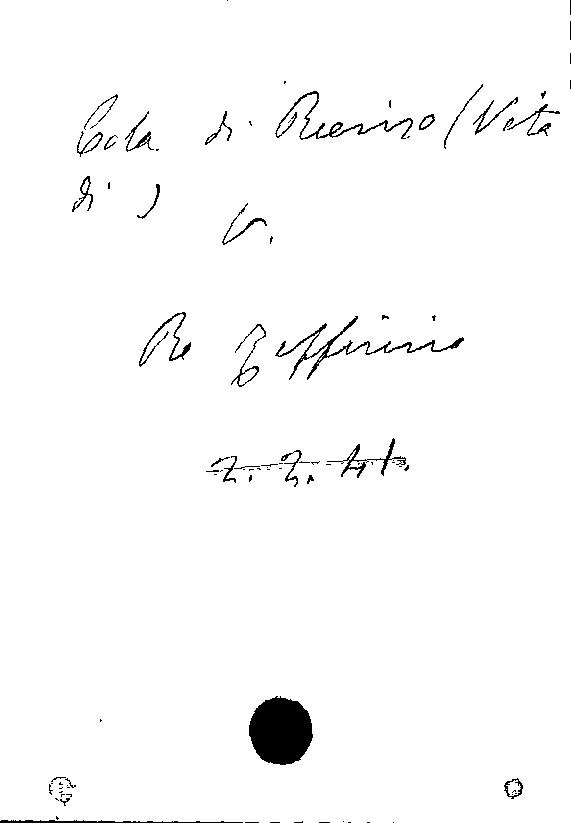 Cola di Rienzo (Vita
di)
V.
Re Zeffirino
Z. Z. 41.